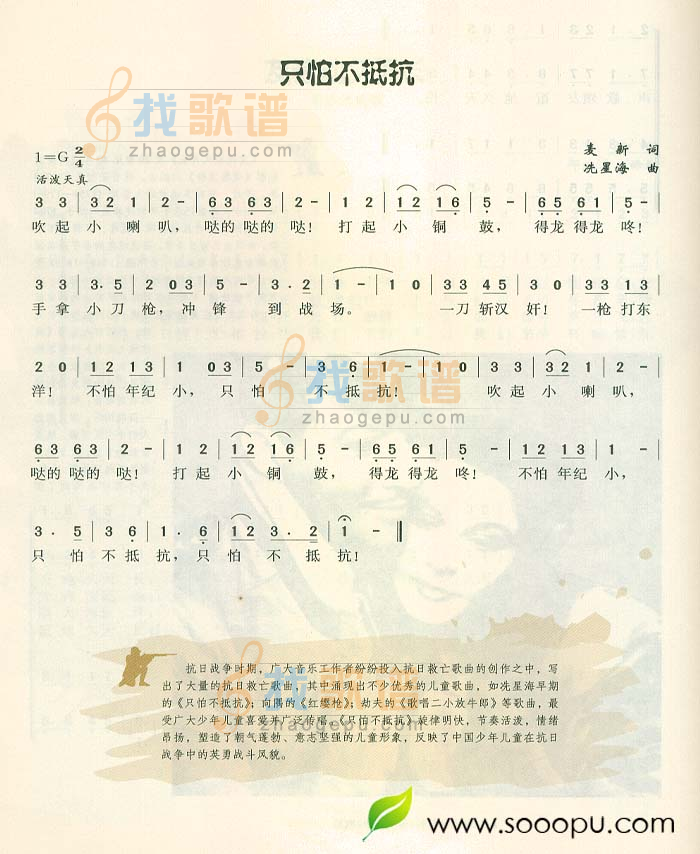 只怕不抵抗
找歌谱
zhaogepu.com
1=G 2/4
麦 新 词
冼星海 曲
活泼天真
3 3 | 3 2 1 | 2 - | 6 3 6 3 | 2 - | 1 2 | 1 2 1 6 | 5 - | 6 5 6 1 | 5 - |
吹 起 小 喇 叭， 哒的 哒的 哒！ 打 起 小 铜 鼓， 得龙 得龙 咚！
3 3 | 3 . 5 | 2 0 3 | 5 - | 3 . 2 | 1 - | 1 0 | 3 3 4 5 | 3 0 | 3 3 1 3 |
手 拿 小 刀 枪，冲 锋 到 战 场。 一刀 斩汉 奸！ 一枪 打东
2 0 | 1 2 1 3 | 1 0 3 | 5 - | 3 . 6 | 1 - | 1 0 | 3 3 | 3 2 1 | 2 - |
洋！ 不怕 年纪 小，只 怕 不 抵 抗！ 吹 起 小 喇 叭，
6 3 6 3 | 2 - | 1 2 | 1 2 1 6 | 5 - | 6 5 6 1 | 5 - | 1 2 1 3 | 1 - |
哒的 哒的 哒！ 打 起 小 铜 鼓， 得龙 得龙 咚！ 不怕 年纪 小，
3 . 5 | 3 6 | 1 . 6 | 1 2 3 . 2 | 1 - ‖
只 怕 不 抵 抗，只 怕 不 抵 抗！
抗日战争时期，广大音乐工作者纷纷投入抗日救亡歌曲的创作之中，写
出了大量的抗日救亡歌曲，其中涌现出不少优秀的儿童歌曲，如冼星海早期
的《只怕不抵抗》；向隅的《红缨枪》；劫夫的《歌唱二小放牛郎》等歌曲，最
受广大少年儿童喜爱并广泛传唱。《只怕不抵抗》旋律明快，节奏活泼，情绪
昂扬，塑造了朝气蓬勃、意志坚强的儿童形象，反映了中国少年儿童在抗日
战争中的英勇战斗风貌。
找歌谱
zhaogepu.com
找歌谱
zhaogepu.com
www.sooopu.com